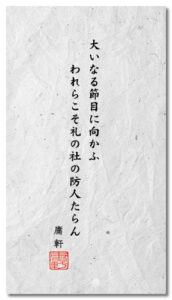 大いなる節目に向かふ
われらこそ礼の社の防人たらん
庸軒